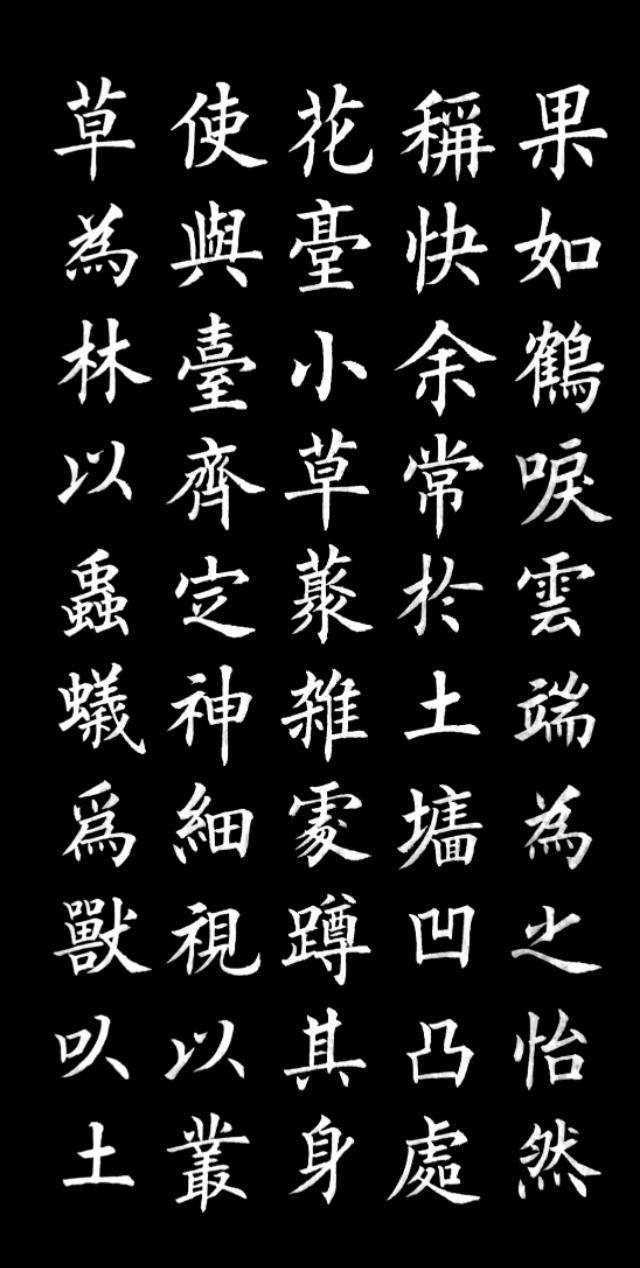 果如鶴唳雲端為之怡然
稱快余常於土墻凹凸處
花臺小草叢雜處蹲其身
使與臺齊定神細視以叢
草為林以蟲蟻爲獸以土